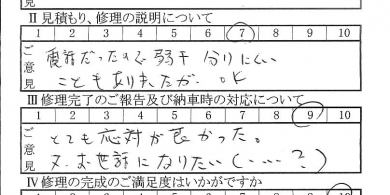 見
Ⅱ見積もり、修理の説明について
1 2 3 4 5 6 7 8 9 10
ご意見
電話だったので弱干分りにくい
こともありましたが、OK
Ⅲ修理完了のご報告及び納車時の対応について
1 2 3 4 5 6 7 8 9 10
ご意見
とても応対が良かった。
又、お世話になりたい(‥‥?)
Ⅳ修理の完成のご満足度はいかがですか
1 2 3 4 5 6 7 8 9 10